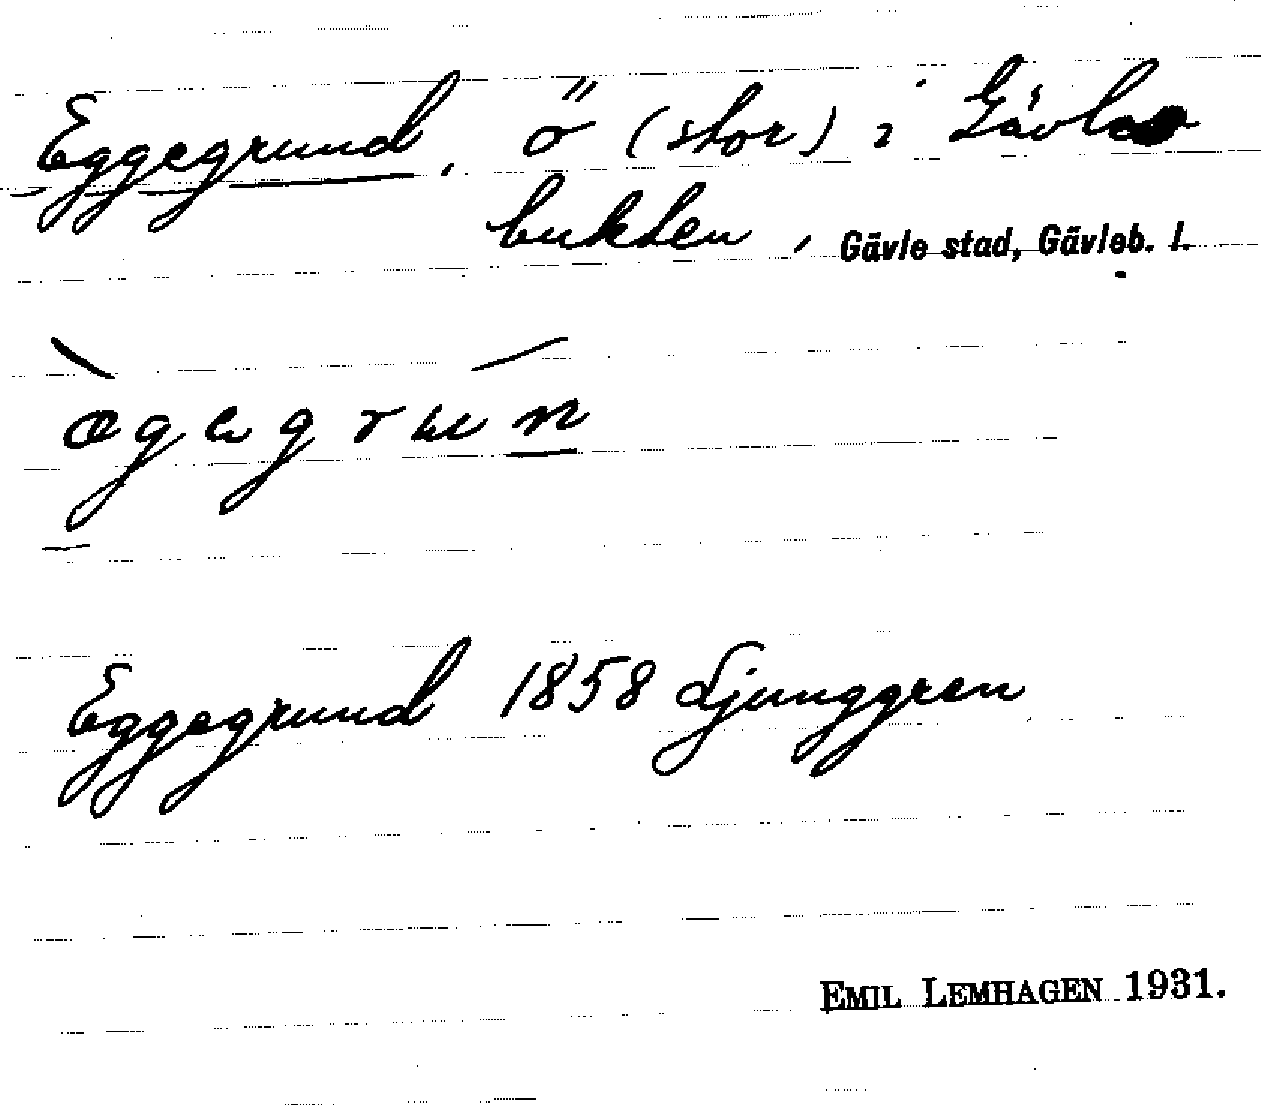 Eggegrund, ö (stor) i Gävle
bukten, Gävle stad, Gävleb. l.
ægegrun
Eggegrund 1858 Ljunggren
EMIL LEMHAGEN 1931.